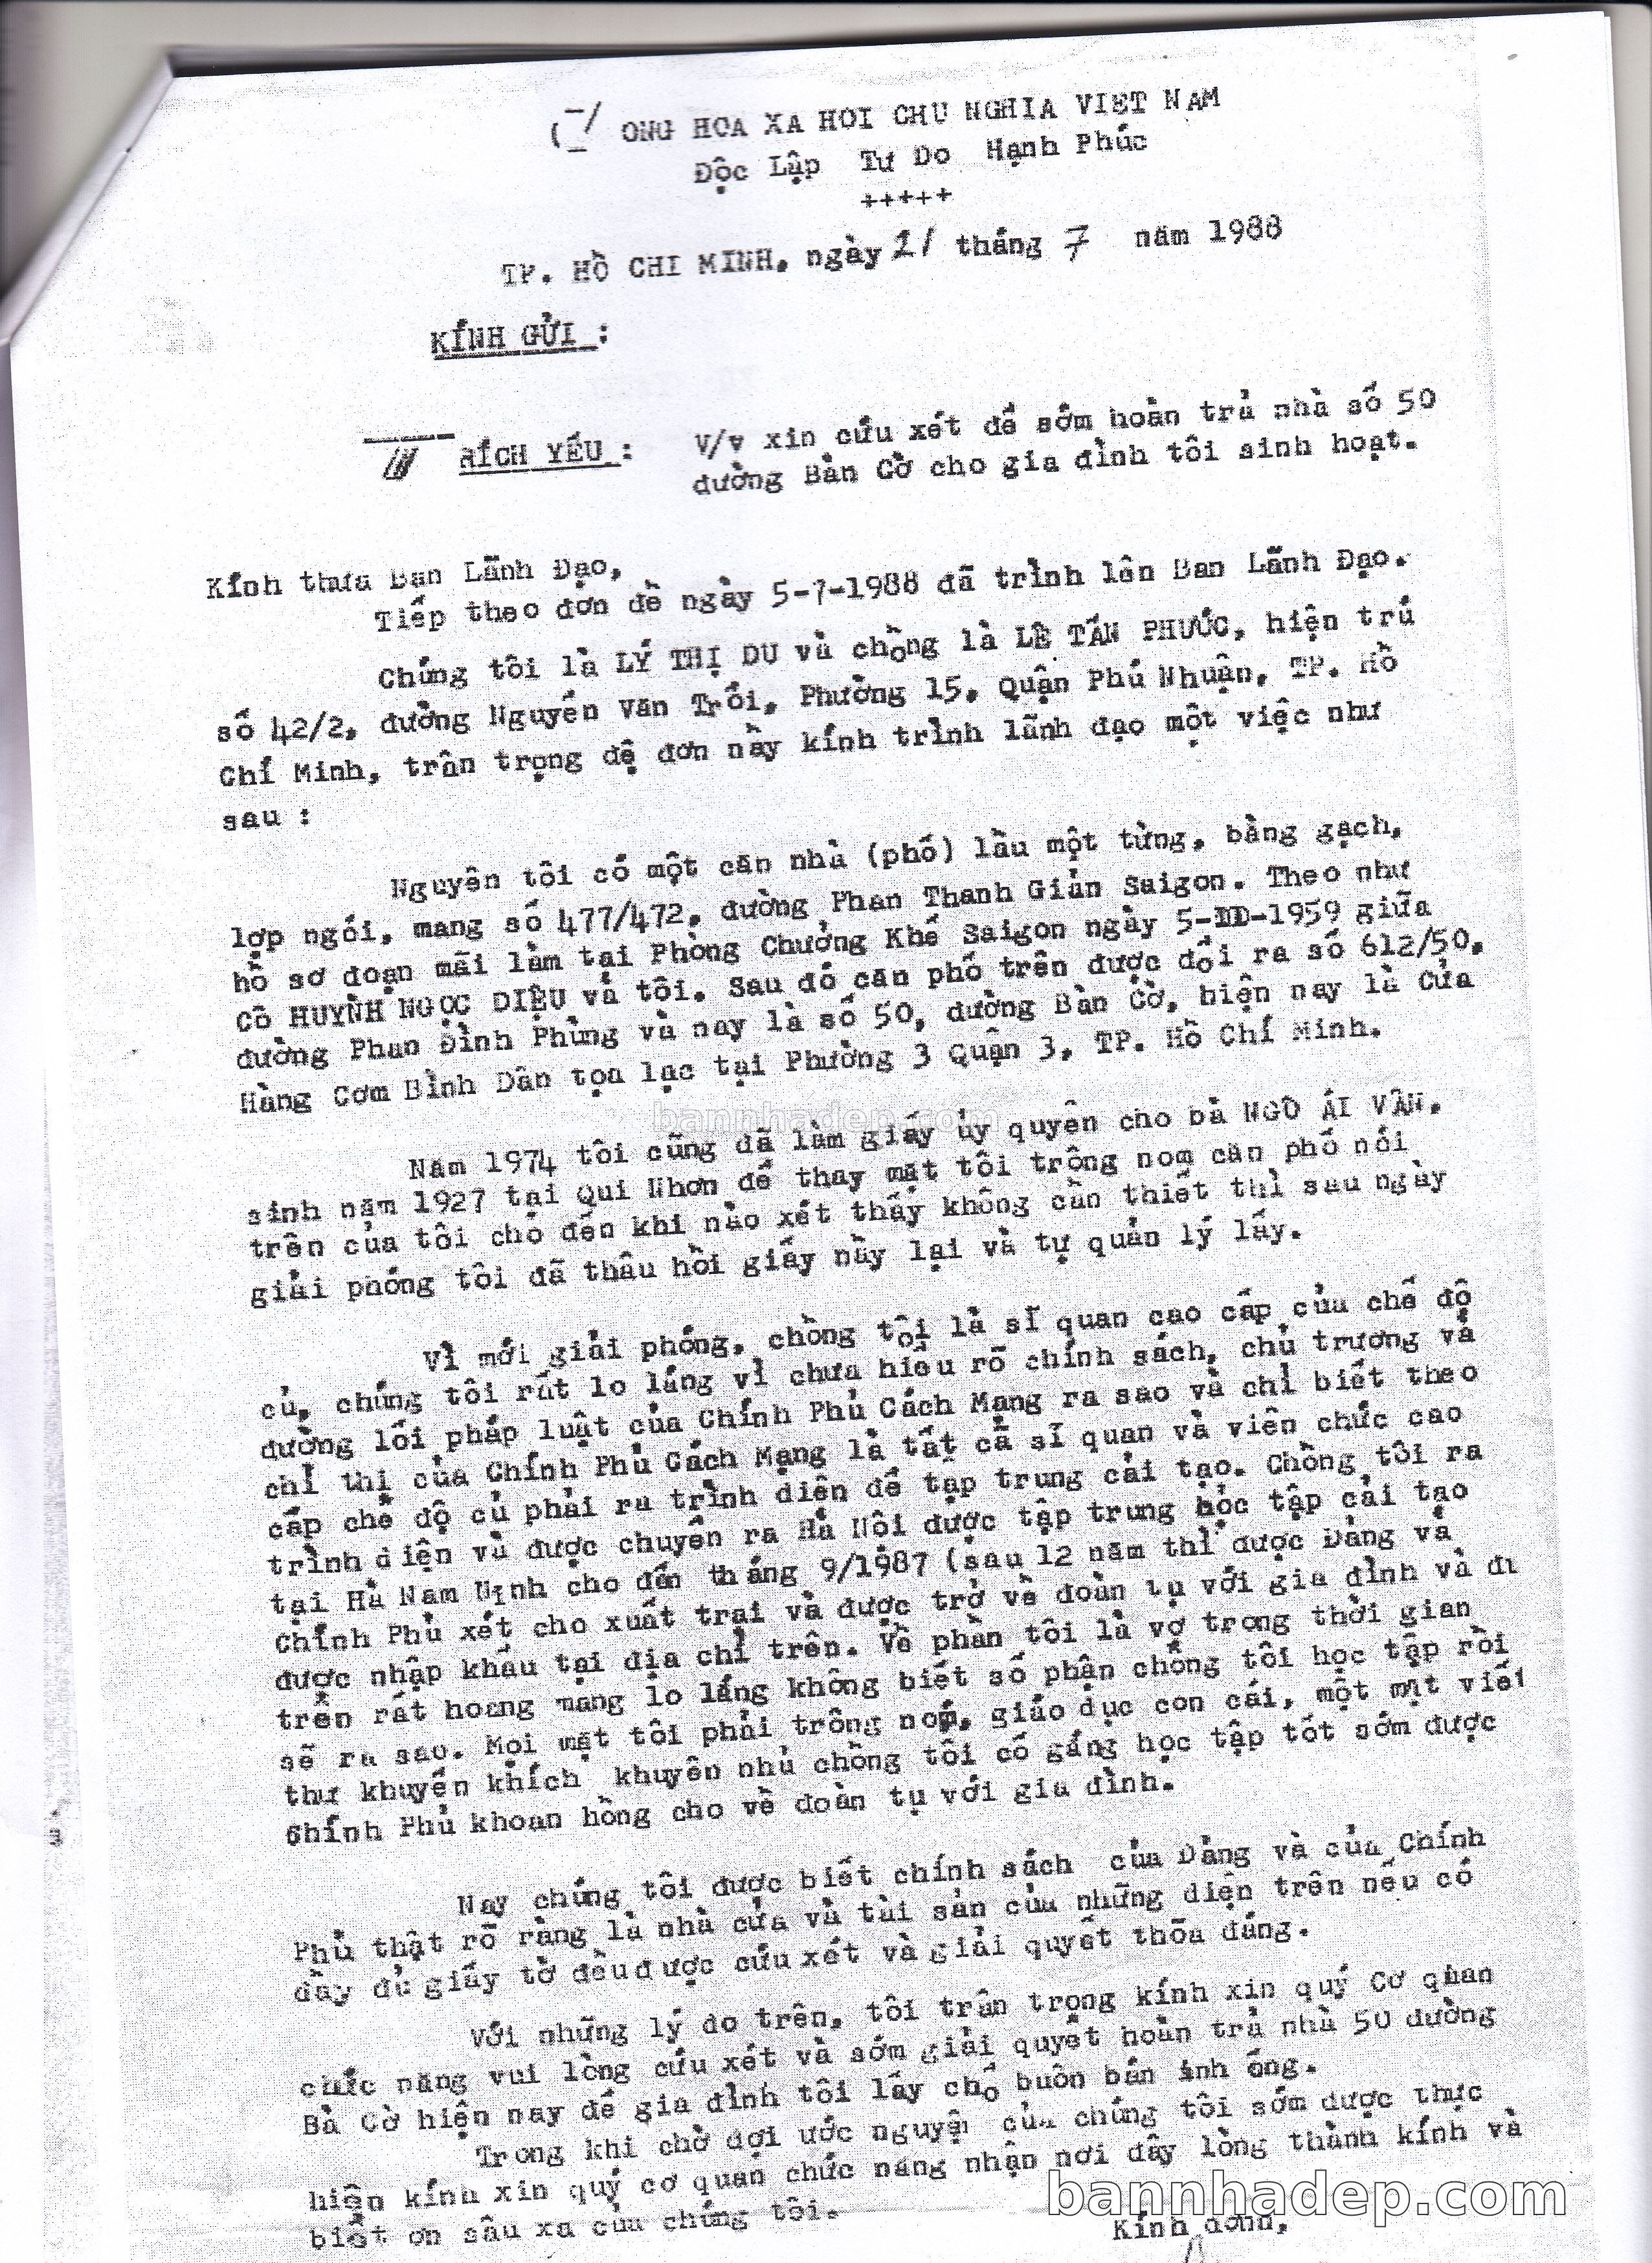 CONG HOA XA HOI CHU NGHIA VIET NAM
Độc Lập Tự Do Hạnh Phúc
+++++
TP. HỒ CHI MINH, ngày 21 tháng 7 năm 1988
KÍNH GỬI :
TRÍCH YẾU : V/v xin cứu xét để sớm hoàn trả nhà số 50
đường Bàn Cờ cho gia đình tôi sinh hoạt.
Kính thưa Ban Lãnh Đạo,
Tiếp theo đơn đề ngày 5-7-1988 đã trình lên Ban Lãnh Đạo.
Chúng tôi là LÝ THỊ DU và chồng là LÊ TẤN PHƯỚC, hiện trú
số 42/2, đường Nguyễn Văn Trổi, Phường 15, Quận Phú Nhuận, TP. Hồ
Chí Minh, trân trọng đệ đơn nầy kính trình lãnh đạo một việc như
sau :
Nguyên tôi có một căn nhà (phố) lầu một từng, bằng gạch,
lợp ngói, mang số 477/472, đường Phan Thanh Giản Saigon. Theo như
hồ sơ đoạn mãi làm tại Phòng Chưởng Khế Saigon ngày 5-III-1959 giữa
Cô HUỲNH NGỌC DIỆU và tôi. Sau đó căn phố trên được đổi ra số 612/50,
đường Phan Đình Phùng và nay là số 50, đường Bàn Cờ, hiện nay là Cửa
Hàng Cơm Bình Dân tọa lạc tại Phường 3 Quận 3, TP. Hồ Chí Minh.
bannhadep.com
Năm 1974 tôi cũng đã làm giấy ủy quyền cho bà NGÔ ÁI VÂN,
sinh năm 1927 tại Qui Nhơn để thay mặt tôi trông nom căn phố nói
trên của tôi cho đến khi nào xét thấy không cần thiết thì sau ngày
giải phóng tôi đã thâu hồi giấy nầy lại và tự quản lý lấy.
Vì mới giải phóng, chồng tôi là sĩ quan cao cấp của chế độ
củ, chúng tôi rất lo lắng vì chưa hiểu rõ chính sách, chủ trương và
đường lối pháp luật của Chính Phủ Cách Mạng ra sao và chỉ biết theo
chỉ thị của Chính Phủ Cách Mạng là tất cả sĩ quan và viên chức cao
cấp chế độ củ phải ra trình diện để tập trung cải tạo. Chồng tôi ra
trình diện và được chuyển ra Hà Nội được tập trung học tập cải tạo
tại Hà Nam Ninh cho đến tháng 9/1987 (sau 12 năm thì được Đảng và
Chính Phủ xét cho xuất trại và được trở về đoàn tụ với gia đình và đu
được nhập khẩu tại địa chỉ trên. Về phần tôi là vợ trong thời gian
trên rất hoang mang lo lắng không biết số phận chồng tôi học tập rồi
sẽ ra sao. Mọi mặt tôi phải trông nom, giáo dục con cái, một mặt viết
thư khuyến khích khuyên nhủ chồng tôi cố gắng học tập tốt sớm được
Chính Phủ khoan hồng cho về đoàn tụ với gia đình.
Nay chúng tôi được biết chính sách của Đảng và của Chính
Phủ thật rõ ràng là nhà cửa và tài sản của những diện trên nếu có
đầy đủ giấy tờ đều được cứu xét và giải quyết thõa đáng.
Với những lý do trên, tôi trân trọng kính xin quý Cơ quan
chức năng vui lòng cứu xét và sớm giải quyết hoàn trả nhà 50 đường
Bà Cờ hiện nay để gia đình tôi lấy chổ buôn bán sinh sống.
Trong khi chờ đợi ước nguyện của chúng tôi sớm được thực
hiện kính xin quý cơ quan chức năng nhận nơi đây lòng thành kính và
biết ơn sâu xa của chúng tôi.
bannhadep.com
Kính đơn,